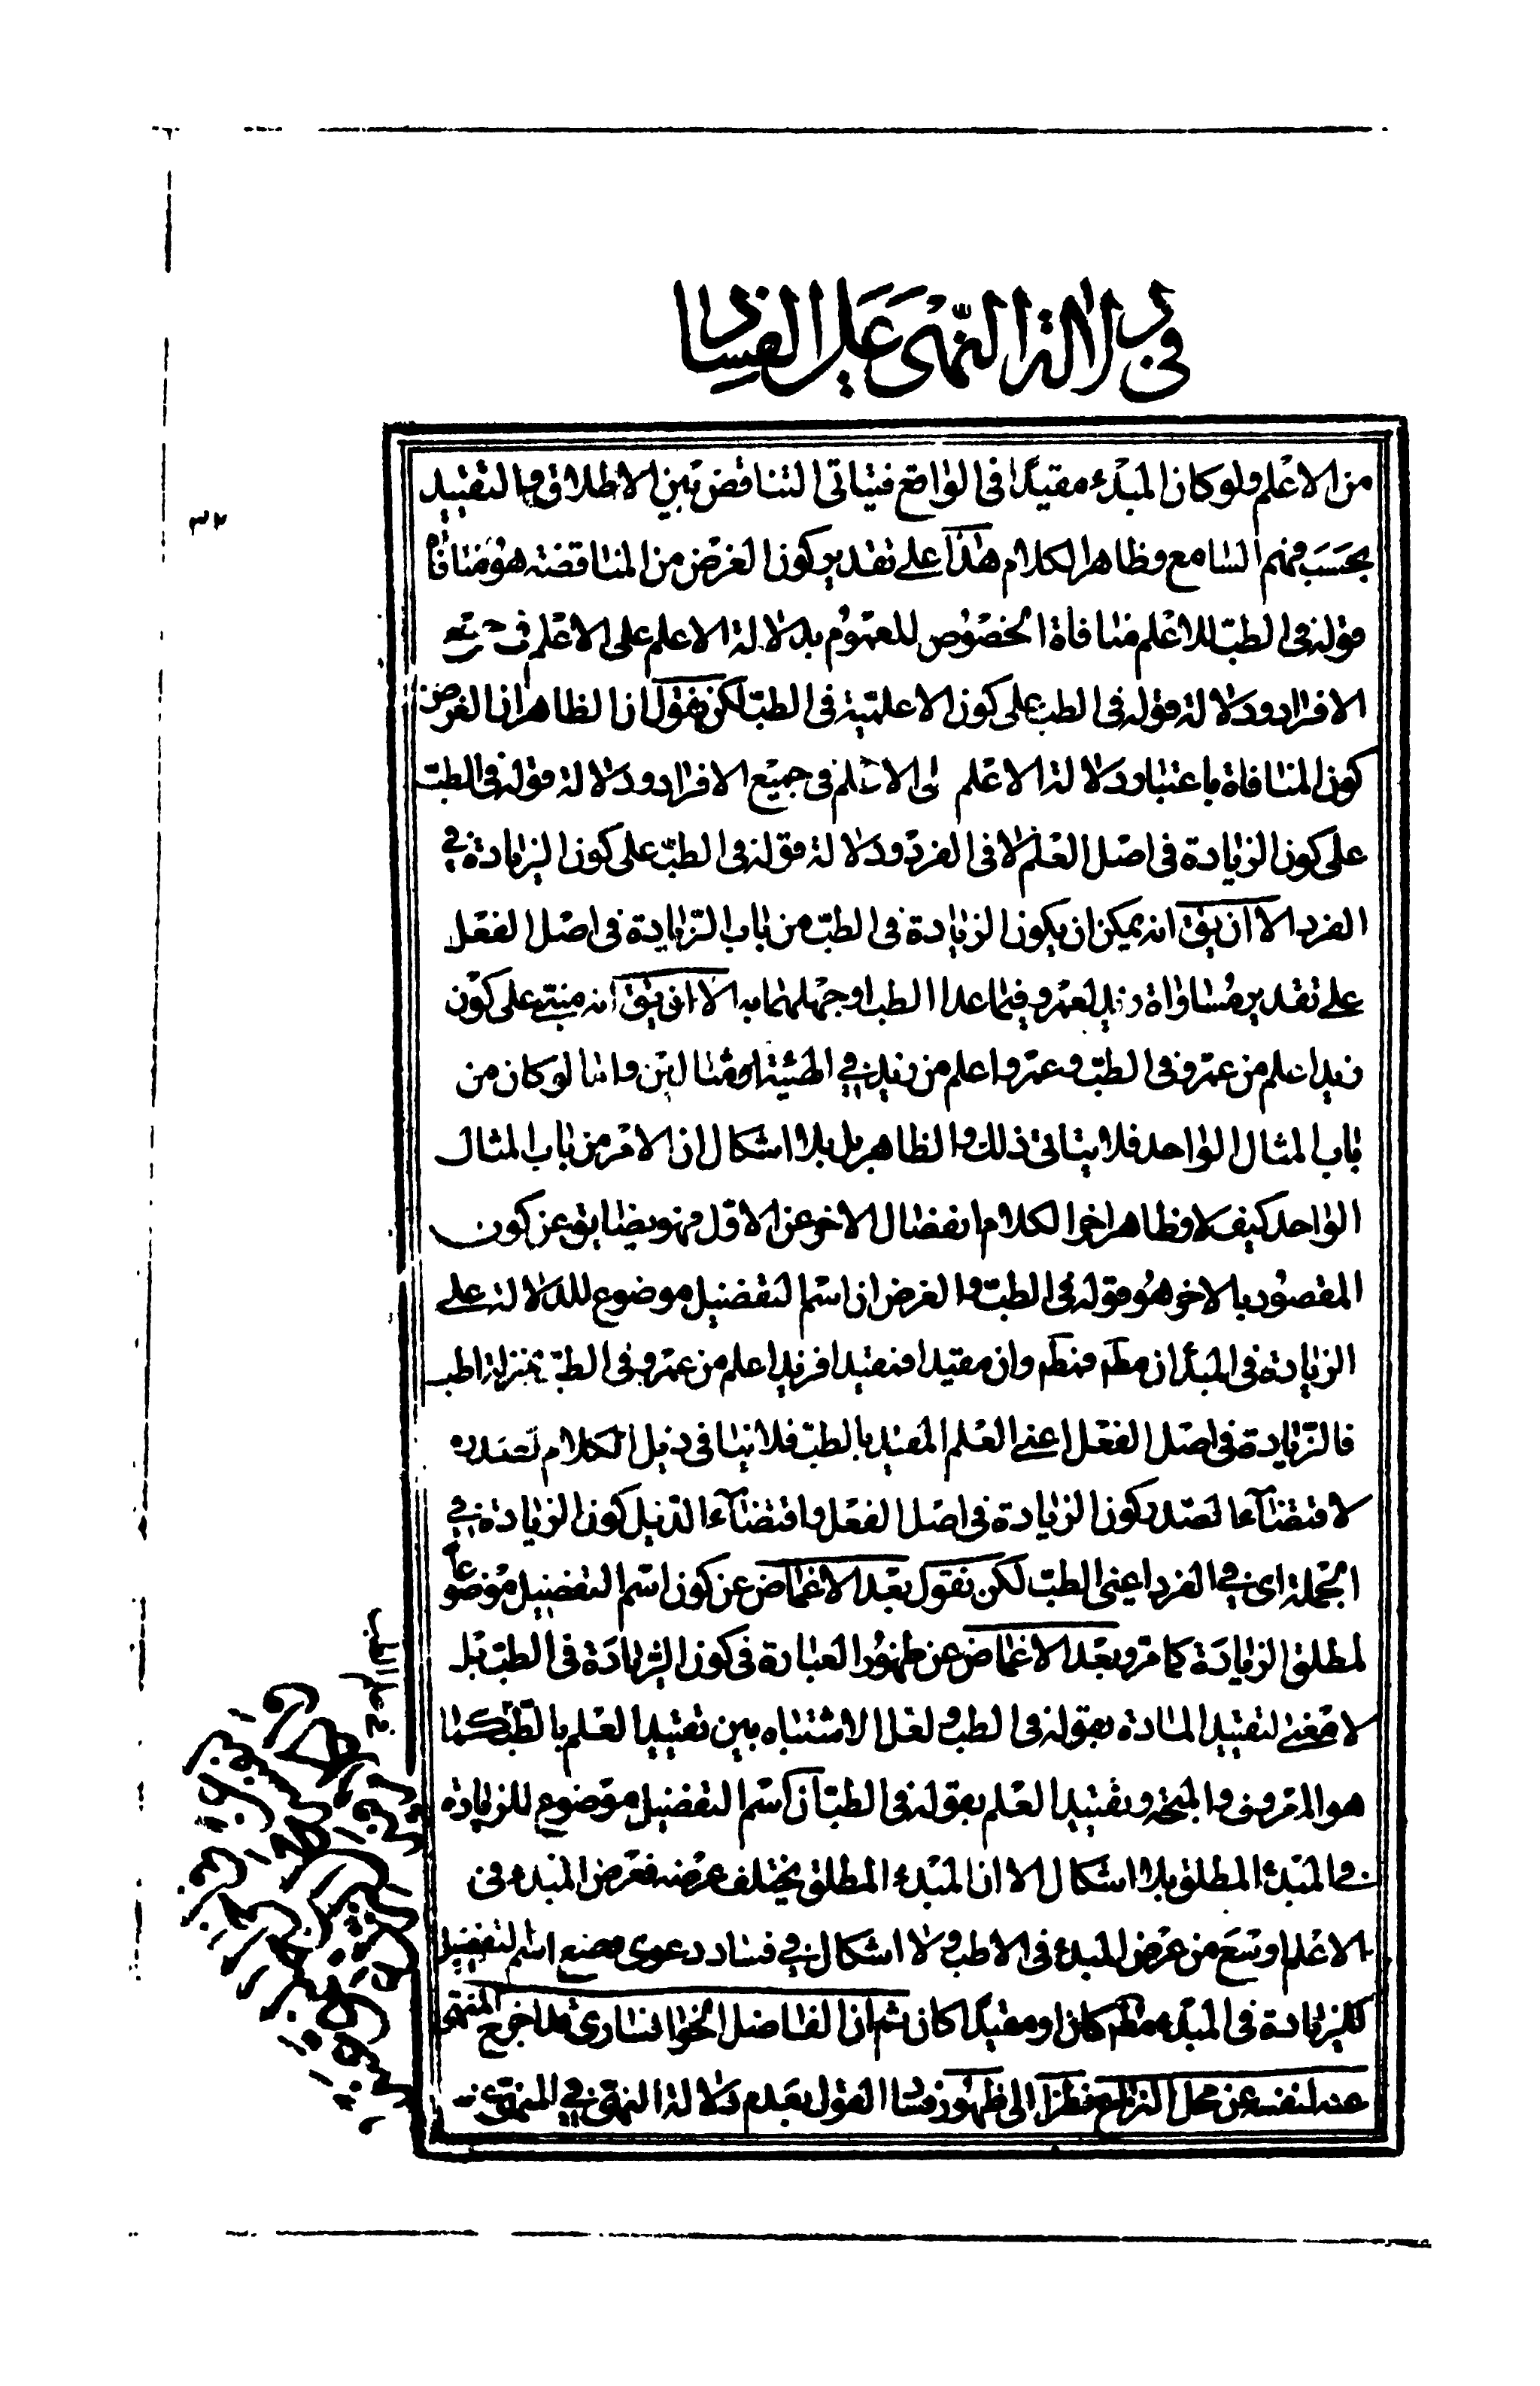 في دلالة النّهى على الفساد
٣٢
من الاعلم ولو كان المبدء مقيدًا فى الواقع فيتاتى التناقض بين الاطلاق والتقييد
بحسب فهم السامع وظاهر الكلام هذا على تقدير كون الغرض من المناقضة هو منافاة
قوله فى الطبّ للاعلم منافاة الخصوص للعموم بدلالة الاعلم على الاعلم فى جميع
الافراد ودلالة قوله فى الطب على كون الاعلميّة فى الطبّ لكن نقول ان الظاهر ان الغرض
كون المنافاة باعتبار دلالة الاعلم على الاعلم فى جميع الافراد ودلالة قوله فى الطبّ
على كون الزيادة فى اصل العلم لا فى الفرد ودلالة قوله فى الطبّ على كون الزيادة في
الفرد الا ان يق انه يمكن ان يكون الزيادة فى الطبّ من باب الزّيادة فى اصل الفعل
على تقدير مساواة زيد لعمرو فيما عدا الطب او جهلهما به الا ان يق انه مبتنى على كون
زيد اعلم من عمرو فى الطبّ وعمرو اعلم من زيد في الهيئة مثالين واما لو كان من
باب المثال الواحد فلا يتاتى ذلك والظاهر بل بلا اشكال ان الامر من باب المثال
الواحد كيف لا وظاهر اخر الكلام انفصال الاخر عن الاوّل فهو يضايق عن كون
المقصود بالاخر هو قوله فى الطبّ والغرض ان اسم التفضيل موضوع للدلالة على
الزيادة فى المبدأ ان مطم فمطم وان مقيدا فمقيدا فزيد اعلم من عمرو فى الطبّ بمنزلة اطب
فالزّيادة فى اصل الفعل اعنى العلم المقيد بالطبّ فلا ينافى ذيل الكلام لصدره
لاقتضآء الصّدر كون الزيادة فى اصل الفعل واقتضآء الذّيل كون الزيادة في
الجملة اى في الفرد اعنى الطبّ لكن نقول بعد الاغماض عن كون اسم التفضيل موضوعاً
لمطلق الزيادة كما مرّ وبعد الاغماض عن ظهور العبارة فى كون الزيادة فى الطبّ بل
لا معنى لتقييد المادة بقوله فى الطب ولعل الاشتباه بين تقييد العلم بالطبّ كما
هو المعروف وتقييد العلم بقوله فى الطبّ ان اسم التفضيل موضوع للزيادة
فى المبدء المطلق بلا اشكال الا ان المبدء المطلق يختلف عرضه فعرض المبدء فى
الاعلم اوسع من عرض المبدء فى الاطب ولا اشكال في فساد دعوى وضع اسم التفضيل
للزيادة فى المبدء مطم كان او مقيدًا كان ثم ان الفاضل الخوانسارى قد اخرج المنهى
عنه لنفسه عن محل النزاع نظرا الى ظهور فساد القول بعدم دلالة النهى في المنهى